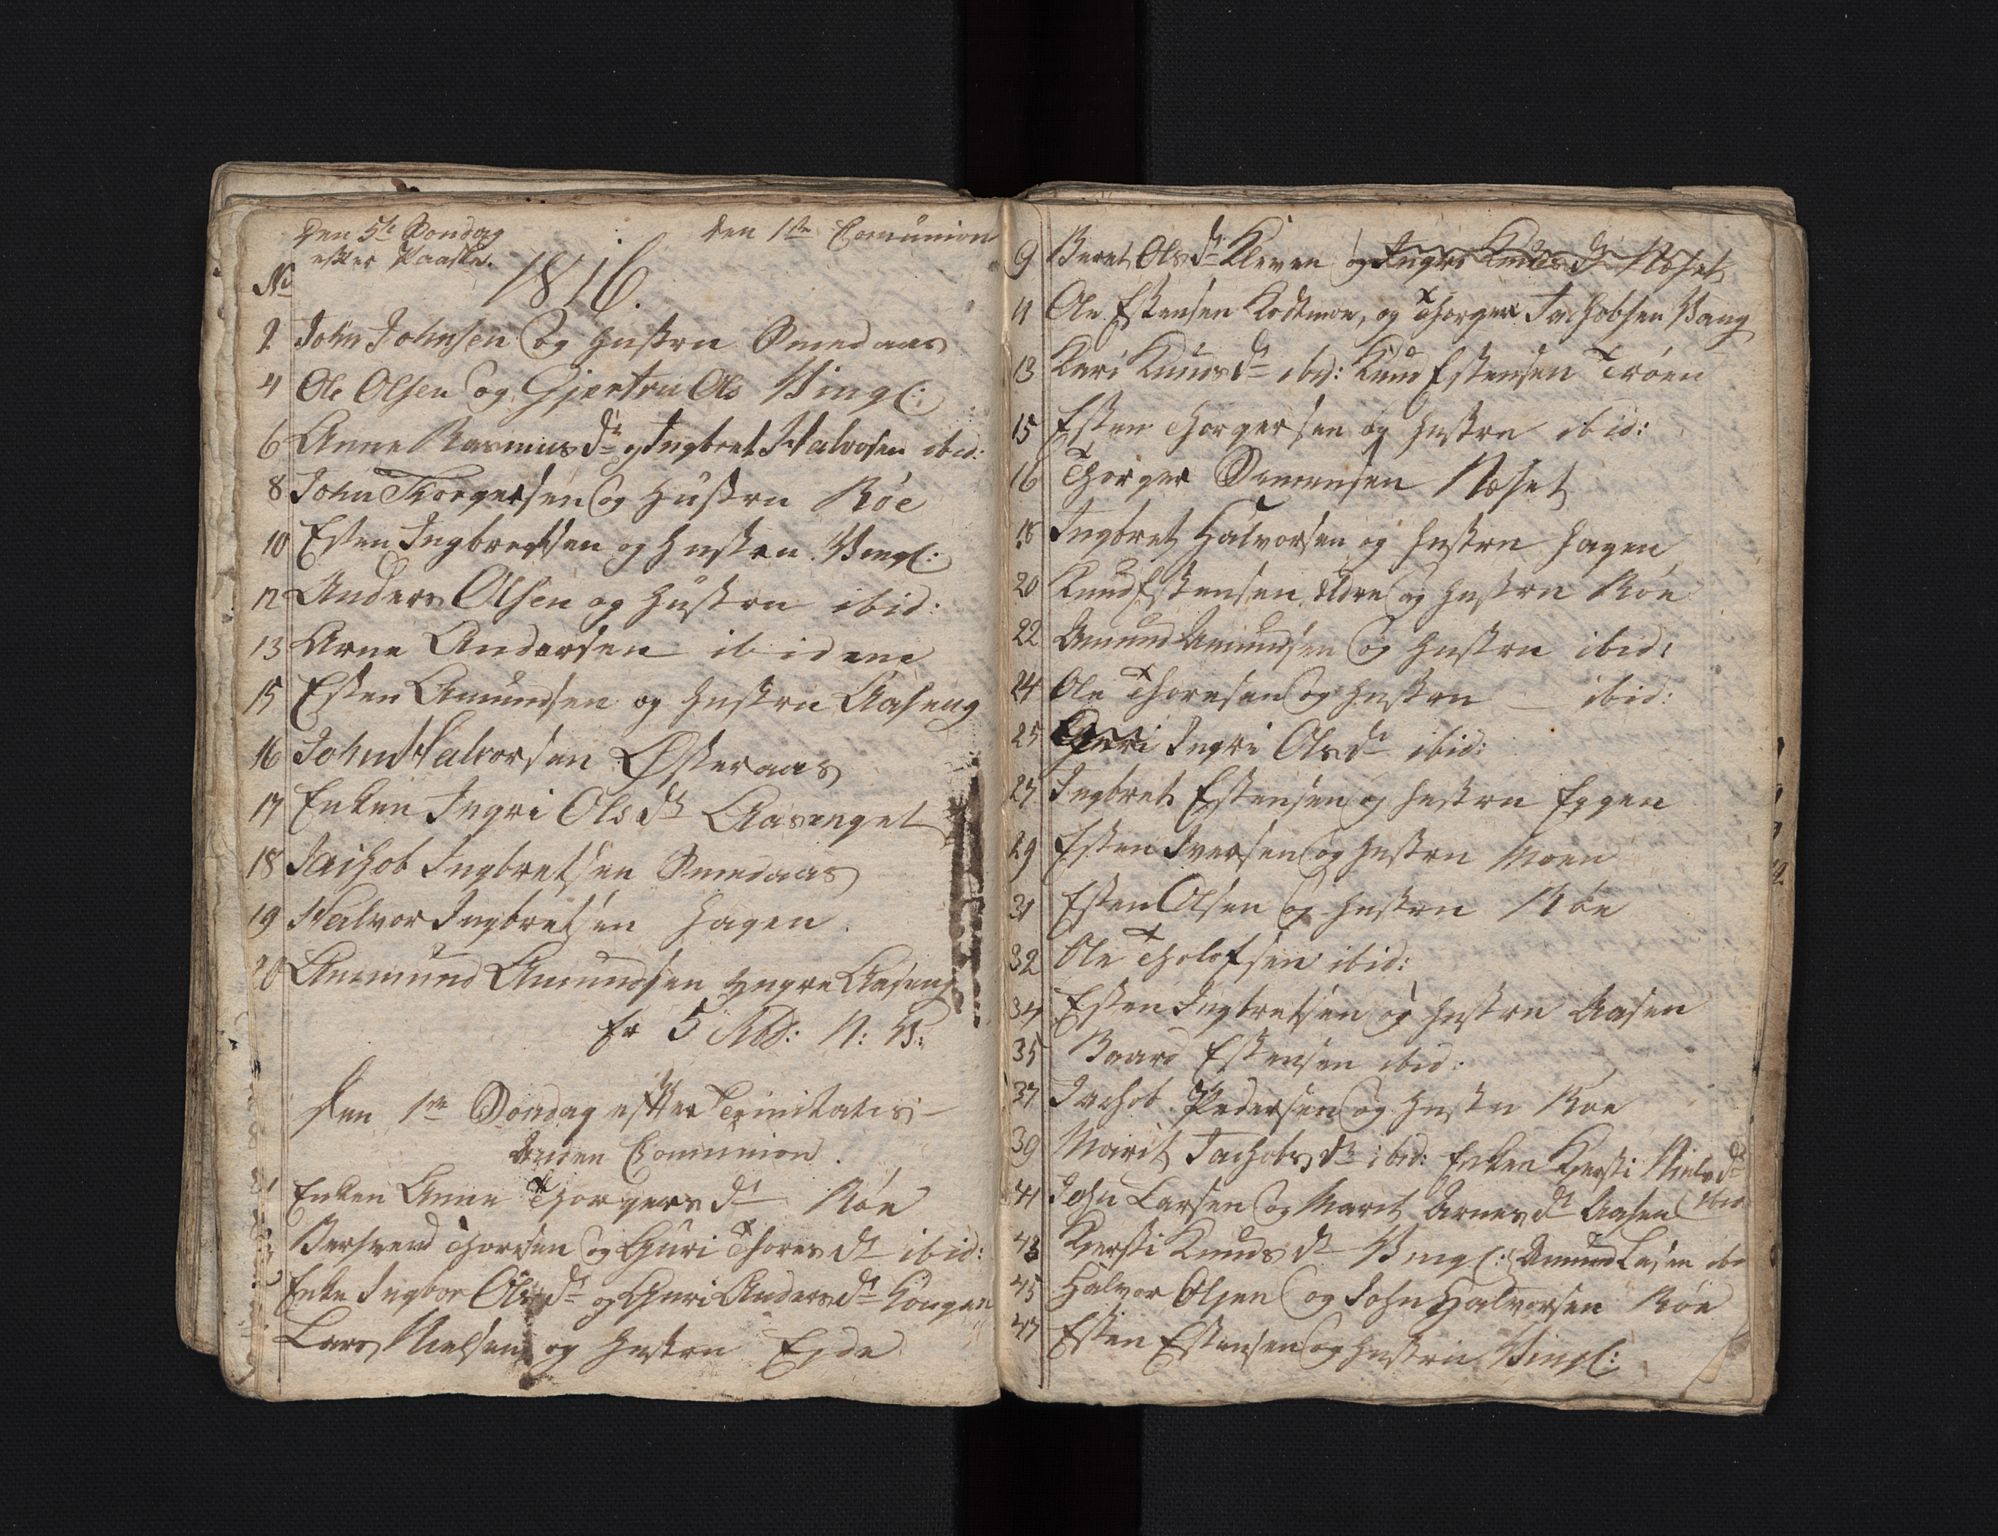 Den 5te Søndag
efter Paaske. Den 1ste Comunion
No 1816.
2 John Johnsen og Hustru Smedaas
4 Ole Olsen og Gjertru Ols Vingl:
6 Anne Rasmus Dr og Ingbret Halvorsen ibid:
8 John Thorgersen og Hustru Røe
10 Esten Ingbretsen og Hustru Vingl:
12 Anders Olsen og Hustru ibid:
13 Arne Andersen ibidem
15 Esten Amundsen og Hustru Aaseng
16 John Halvorsen Østeraas
17 Enken Ingri Ols Dr Aasenget
18 Jachob Ingbretsen Smedaas
19 Halvor Ingbretsen Hagen.
20 Ammund Amundsen yngre Aaseng
er 5 Rbd: N: V:
Den 1ste Søndag efter Trinitatis
Anden Comunion.
1 Enken Anne Thorgers Dr Røe
3 Bersvend Thorsen og Guri Thores Dr ibid:
Enke Ingbor Ols Dr og Guri Anders Dr Kongen
Lars Nielsen og Hustru Egde
9 Beret Ols Dr Kleven og Ingri Knuds Dr Næset
11 Ole Estensen Kodtmoe, og Thorger Jachobsen Vang
13 Kari Knuds Dr ibid: Knud Estensen Trøen
15 Esten Thorgersen og Hustru ibid:
16 Thorger Simensen Næset
18 Ingbret Halvorsen og Hustru Hagen
20 Knud Estensen eldre og Hustru Røe
22 Amund Amundsen og Hustru ibid:
24 Ole Thoresen og Hustru – ibid:
25 Guri Ingri Ols Dr ibid:
27 Ingbret Estensen og Hustru Eggen
29 Esten Iversen og Hustru Moen
31 Esten Olsen og Hustru Røe
32 Ole Tholofsen ibid:
34 Esten Ingbretsen og Hustru Aasen
35 Baard Estensen ibid:
37 Jachob Pedersen og Hustru Roe
39 Marit Jachobs Dr ibid: Enken Kersti Niels Dr
ibid
41 John Larsen og Marit Arnes Dr Aasen
43 Kersti Knuds Dr Vingl: Amund
45 Halvor Olsen og John Halvorsen Røe
47 Esten Estensen og Hustru Vingl: